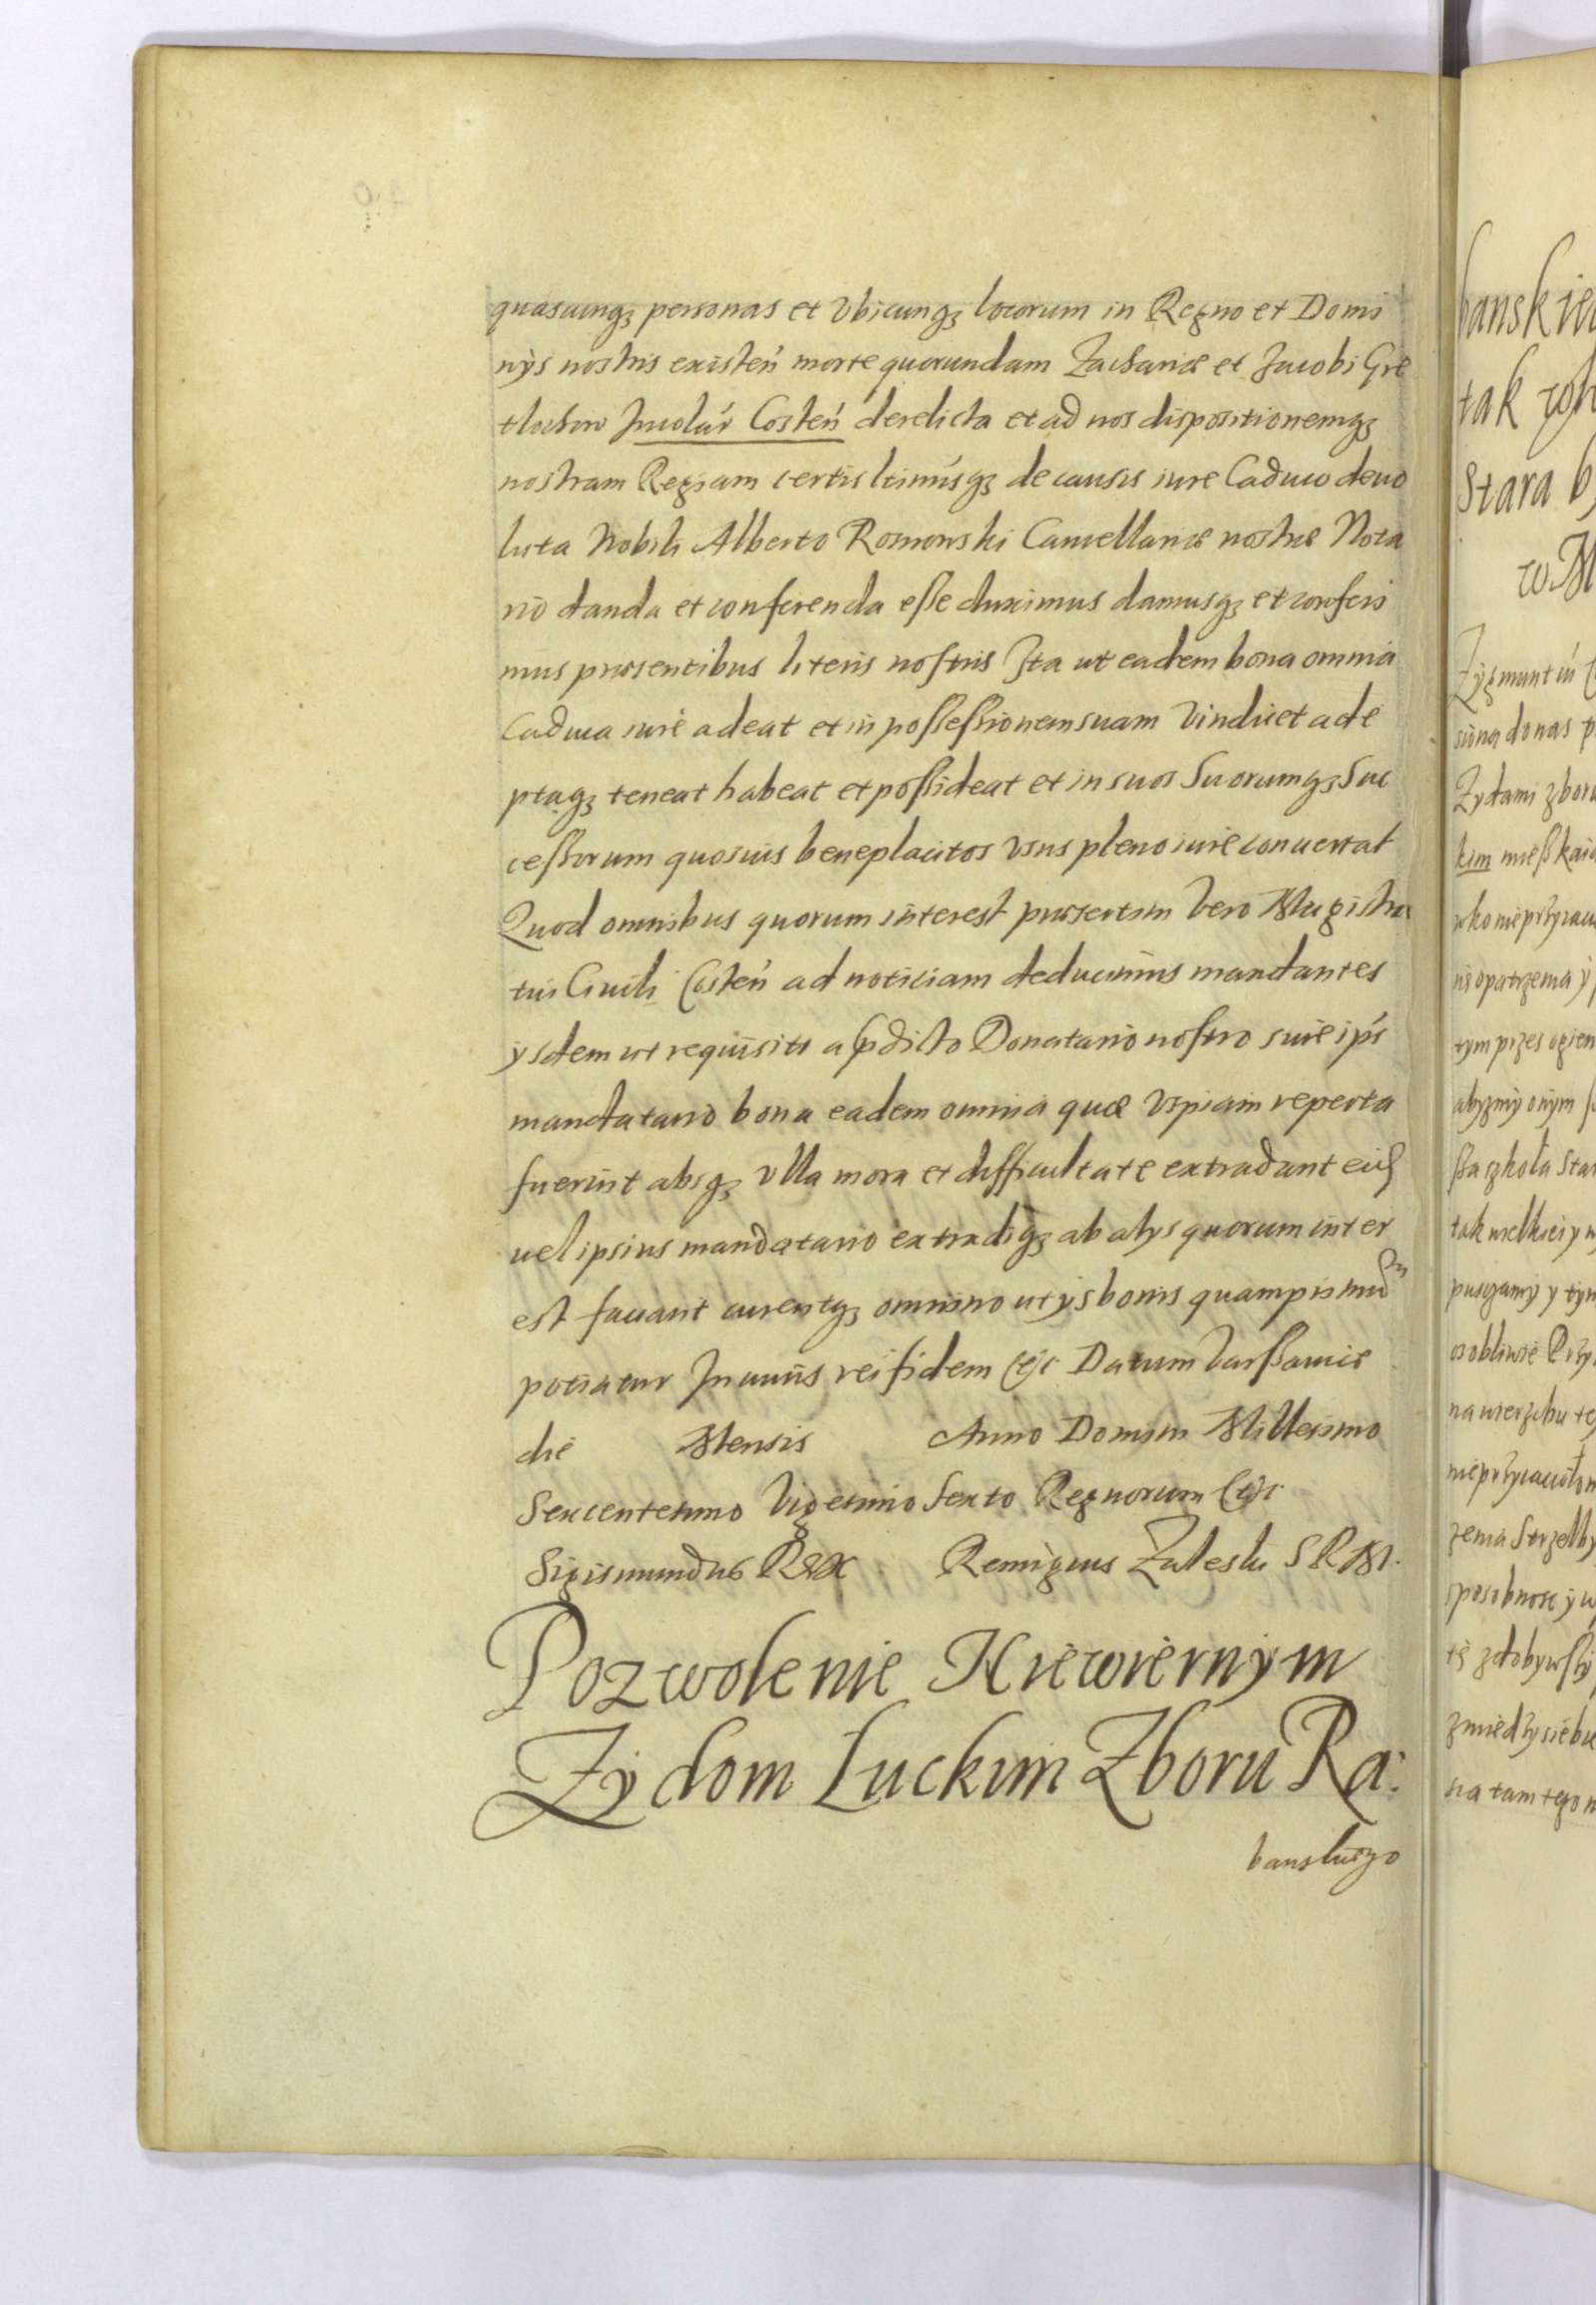 quascunqȝ personas et Vbicunqȝ locorum in Regno et Domi
nÿs nostris existeń morte quorundam Zachariæ et Jacobi Gre
derelicta et ad nos dispositionemqȝ
nostram Regiam certis ltimisqȝ de causis iure Caduco deuo
luta Nobili Alberto Rosnowski Cancellariæ nostræ Nota
rio danda et conferenda esse duximus damusqȝ et conferi
mus præsentibus literis nostris Ita ut eadem bona omnia
Caduca iure adeat et in possessionem suam Vindicet ade
ptaqȝ teneat habeat et possideat et in suos Suorumqȝ Suc
cessorum quosuis beneplacitos vsus pleno iure conuertat
Quod omnibus quorum interest præsertim Vero Magistra
tui Ciuili Costeń ad noticiam deducimus mandantes
ysdem ut requisiti a pdicto Donatario nostro siue ips
mandatario bona eadem omnia quæ Vspiam reperta
fuerint absqȝ vlla mora et difficultate extradant
uel ipsius mandatario extradiqȝ ab alys quorum inter
est faciant curentqȝ omnino ut ys bonis
potiatur In cuius rei fidem etc Datum Varssauiæ
die Mensis Anno Domini Millesimo
Sexcentesimo Vigesimo Sexto Regnorum etc
Sigismundus Rex Remigius Zaleski S R M.
Pozwolenie Niewiernÿm
Zÿdom Łuckim Zboru Ra:
banskiego
banskie
tak
Stara
w M
Zÿgmunt iii
donas
Zydami zboru
kim mießkai
nis opatrzenia ÿ
tym przes ogien
abyzmÿ onym
ßa szkoła Star
tak wielkiei y
pusczamÿ y tÿm
osobliwie Przy
na wierzchu te
zenia Strzelby
sposobnosc ÿ w
zdobywßÿ
zmiedzy siebie
na tamtego